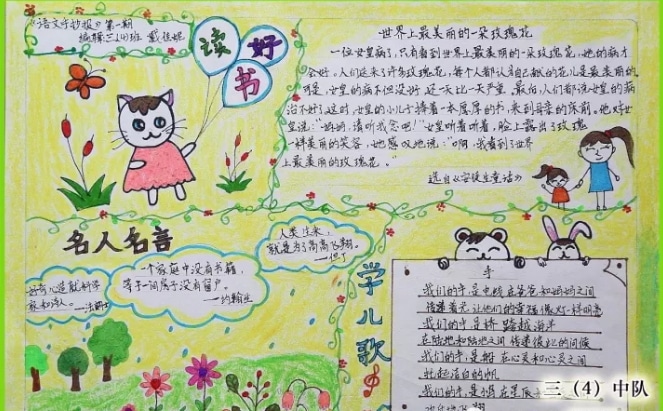 《语文手抄报》第一期
编辑三(4)班
读好书
世界上最美丽的一朵玫瑰花
一位女皇病了,只有看到世界上最美丽的一朵玫瑰花,她的病才
会好。人们送来了许多玫瑰花,每个人都认为自己献的花儿是最美丽的
可是,女皇的病不但没好,还一天比一天严重。最后,人们都说女皇的病
治不好了。这时,女皇的小儿子捧着一本厚厚的书,来到母亲的床前。他对女
皇说:“妈妈,请听我念吧!”女皇听着听着,脸上露出了玫瑰
一样美丽的笑容,她感叹地说:“啊,我看到了世界
上最美丽的玫瑰花。”
选自《安徒生童话》
名人名言
人类过来,
就是为了高高飞翔。
——但丁
一个家庭中没有书籍,
等于一间房子没有窗户。
——约翰逊
好奇心造就科学
家和诗人。——法朗士
学儿歌
手
我们的手是电线 在爸爸和妈妈之间
传递着光 让他们的幸福 像灯一样明亮
我们的手是桥 跨越海洋
在陆地和陆地之间 传递彼此的问候
我们的手是树 在心灵和心灵之间
我们的手是
三(4)中队